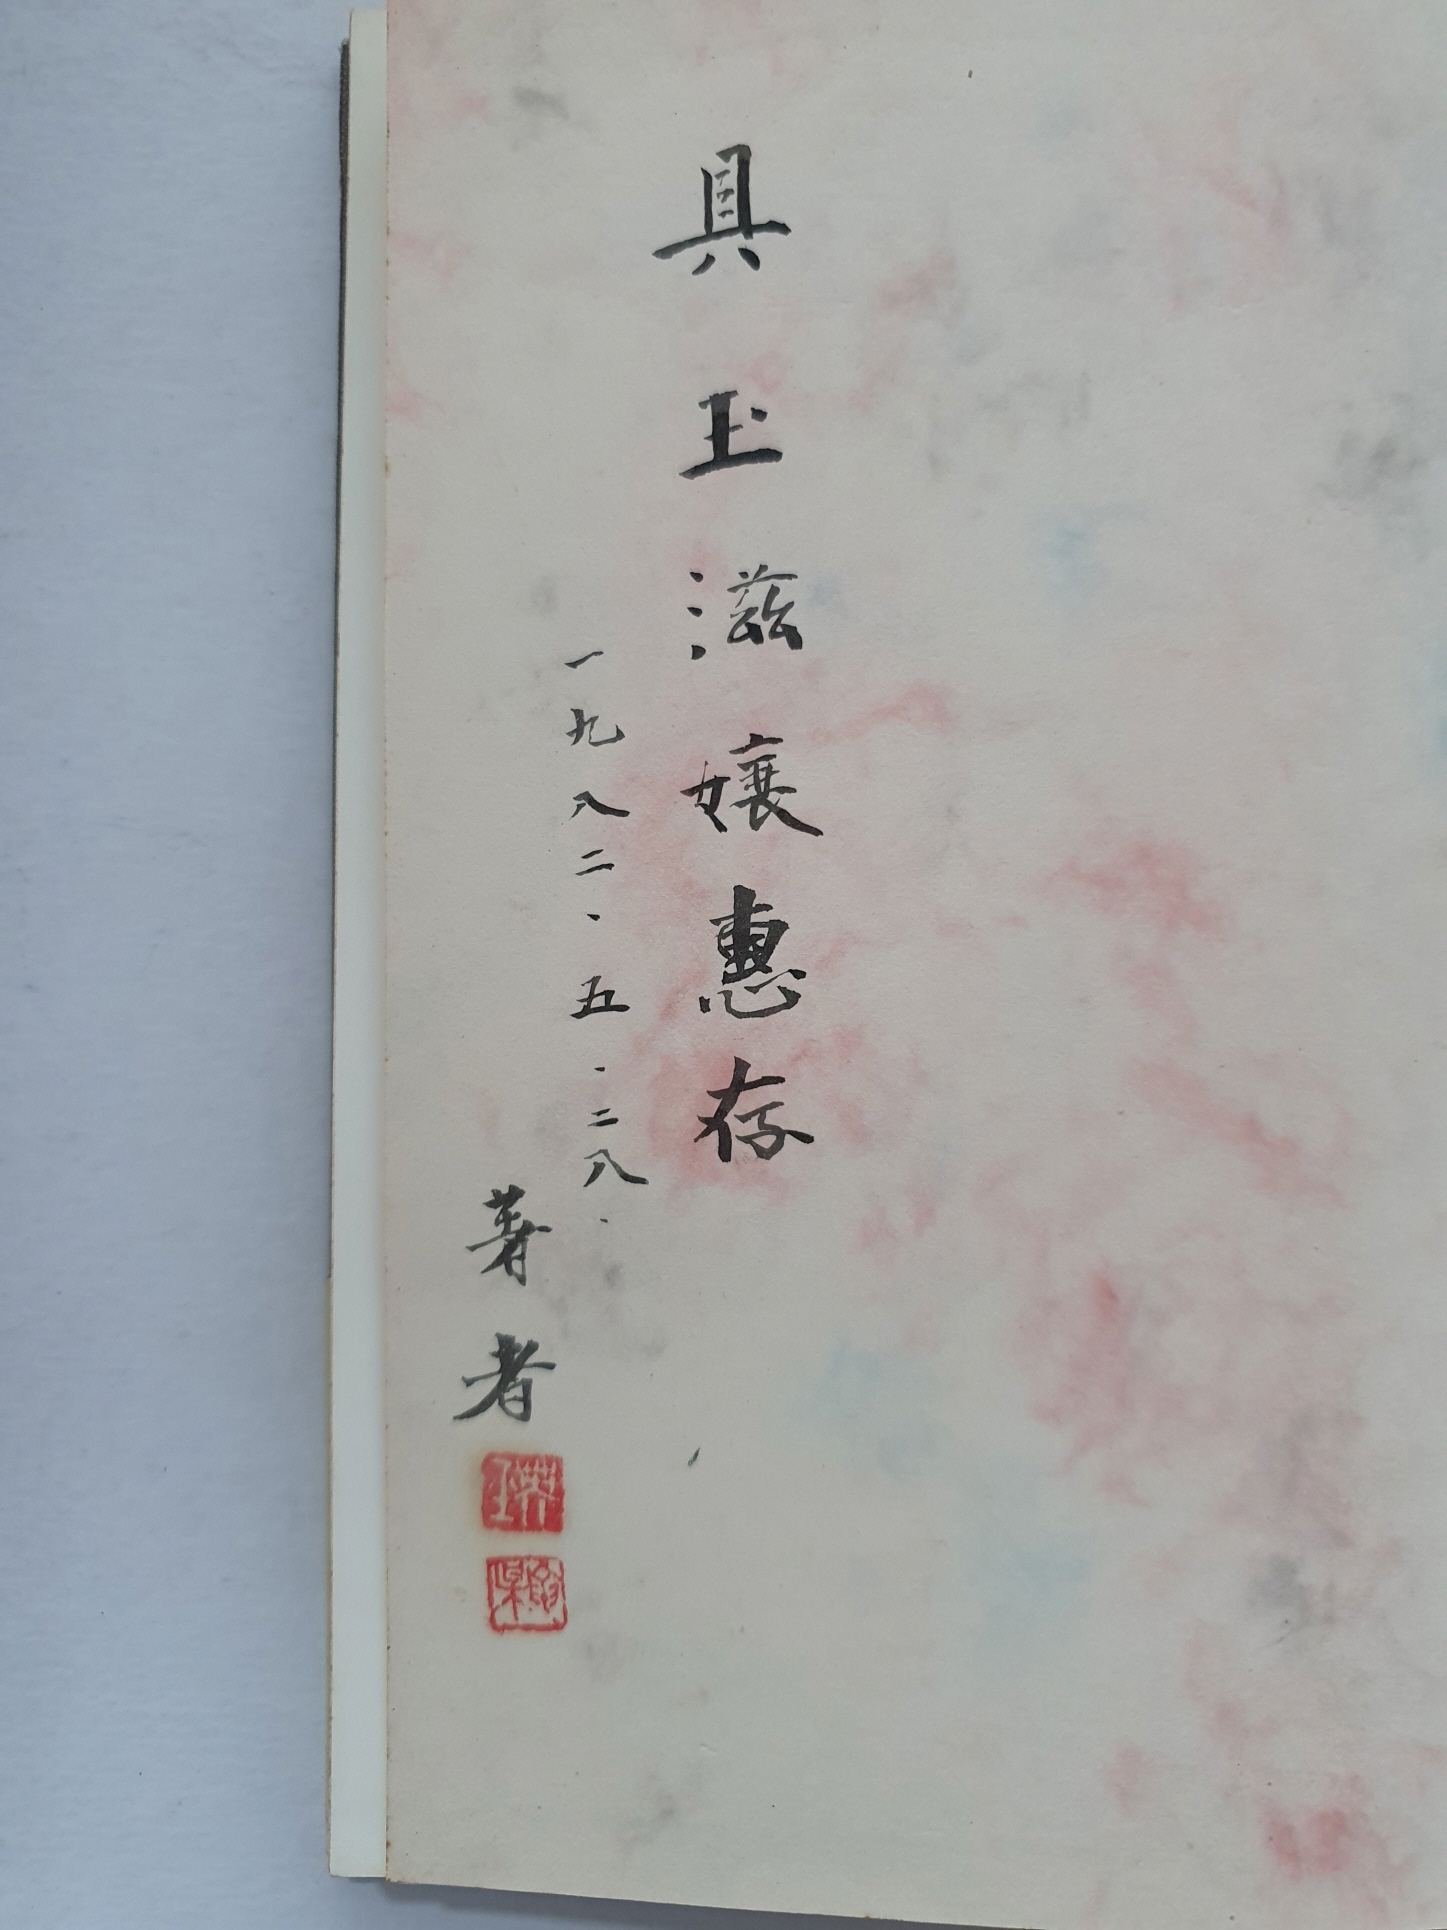 具玉滋孃惠存
一九八二、五.二八.
著者